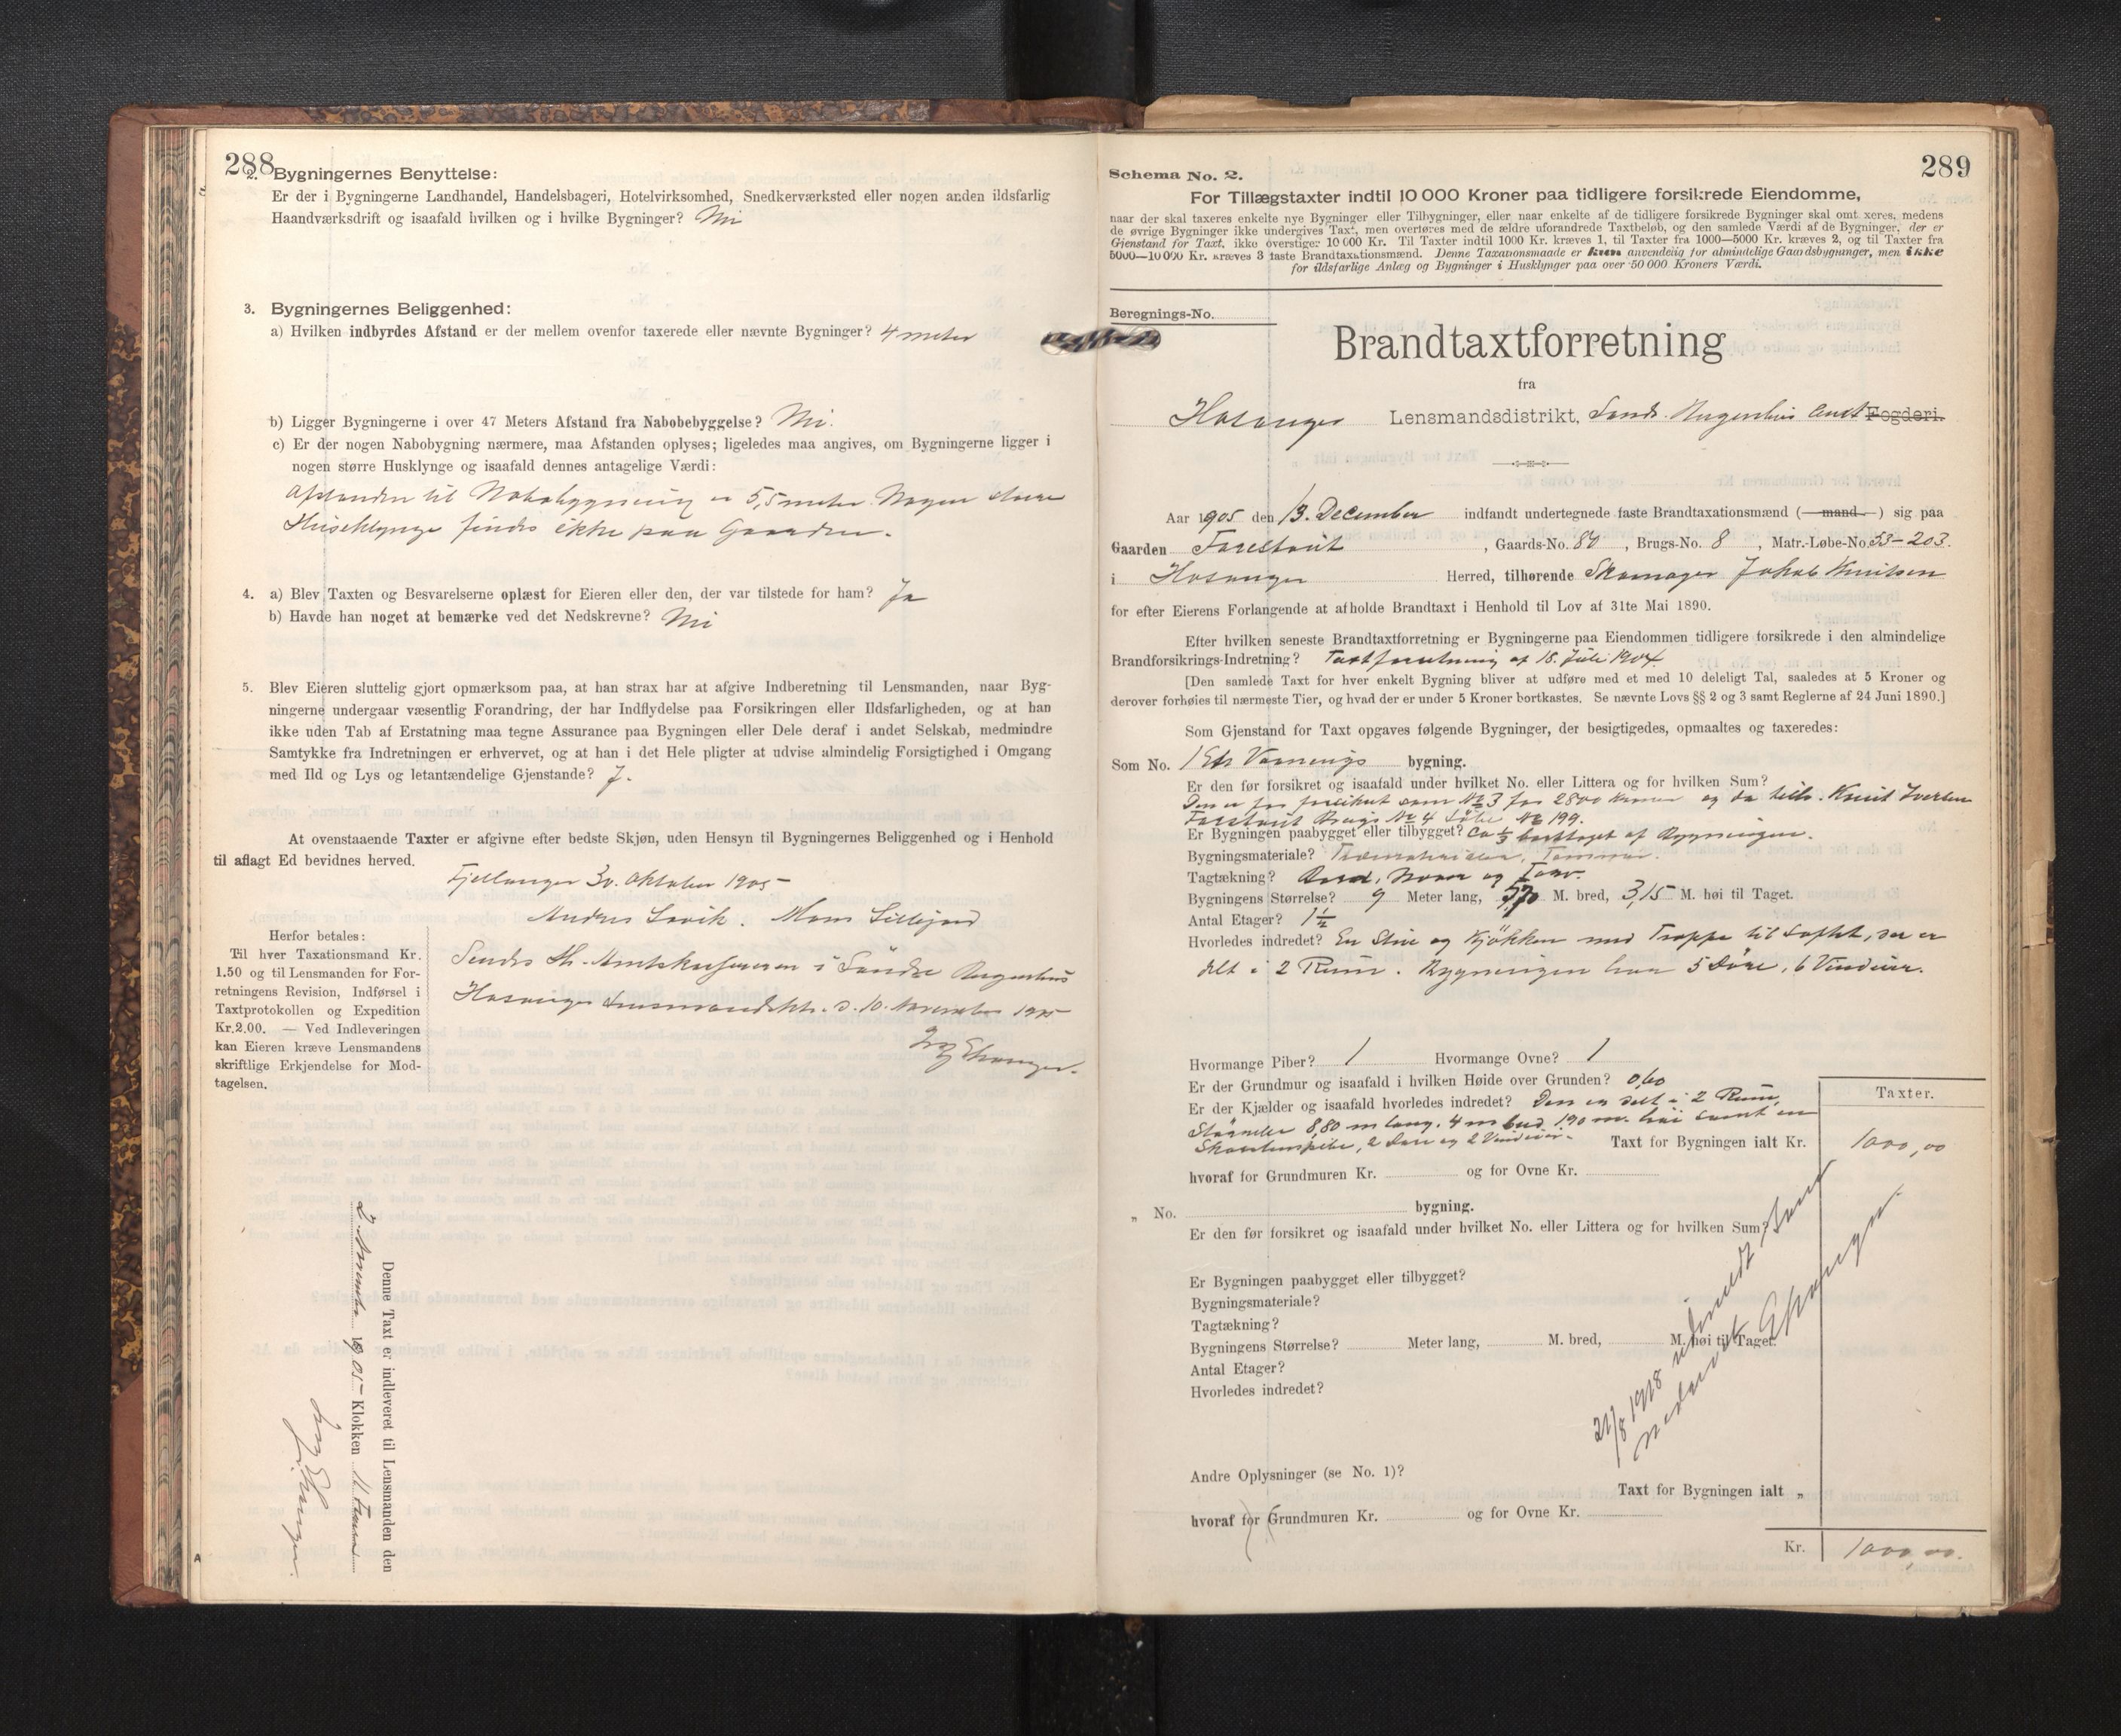 288
2. Bygningernes Benyttelse:
Er der i Bygningerne Landhandel, Handelsbageri, Hotelvirksomhed, Snedkerværksted eller nogen anden ildsfarlig
Haandværksdrift og isaafald hvilken og i hvilke Bygninger? Nei
3. Bygningernes Beliggenhed:
a) Hvilken indbyrdes Afstand er der mellem ovenfor taxerede eller nævnte Bygninger? 4 meter
b) Ligger Bygningerne i over 47 Meters Afstand fra Nabobebyggelse? Nei.
c) Er der nogen Nabobygning nærmere, maa Afstanden oplyses; ligeledes maa angives, om Bygningerne ligger i
nogen større Husklynge og isaafald dennes antagelige Værdi:
Afstanden til Nabobygning er 5,5 meter. Nogen større
Huseklynge findes ikke paa Gaarden.
4. a) Blev Taxten og Besvarelserne oplæst for Eieren eller den, der var tilstede for ham? Ja
b) Havde han noget at bemærke ved det Nedskrevne? Nei
5. Blev Eieren sluttelig gjort opmærksom paa, at han strax har at afgive Indberetning til Lensmanden, naar Byg-
ningerne undergaar væsentlig Forandring, der har Indflydelse paa Forsikringen eller Ildsfarligheden, og at han
ikke uden Tab af Erstatning maa tegne Assurance paa Bygningen eller Dele deraf i andet Selskab, medmindre
Samtykke fra Indretningen er erhvervet, og at han i det Hele pligter at udvise almindelig Forsigtighed i Omgang
med Ild og Lys og letantændelige Gjenstande? J.
At ovenstaaende Taxter er afgivne efter bedste Skjøn, uden Hensyn til Bygningernes Beliggenhed og i Henhold
til aflagt Ed bevidnes herved.
Fjellanger 30. Oktober 1905
Andres Mons Lillejord
Herfor betales:
Til hver Taxationsmand Kr.
1.50 og til Lensmanden for For-
retningens Revision, Indførsel i
Taxtprotokollen og Expedition
Kr.2.00. — Ved Indleveringen
kan Eieren kræve Lensmandens
skriftlige Erkjendelse for Mod-
tagelsen.
Sendes Hr. Amtskasserer i Søndre Bergenhus
Hosanger Lensmandsktr. d. 10. November 1905
Denne Taxt er indleveret til Lensmanden den
2. November 1905 Klokken 11 Form
289
Schema No. 2.
For Tillægstaxter indtil 10 000 Kroner paa tidligere forsikrede Eiendomme,
naar der skal taxeres enkelte nye Bygninger eller Tilbygninger, eller naar enkelte af de tidligere forsikrede Bygninger skal omt xeres, medens
de øvrige Bygninger ikke undergives Taxt, men overføres med de ældre uforandrede Taxtbeløb, og den samlede Værdi af de Bygninger, der er
Gjenstand for Taxt, ikke overstiger 10 000 Kr. Til Taxter indtil 1000 Kr. kræves 1, til Taxter fra 1000—5000 Kr. kræves 2, og til Taxter fra
5000—10 000 Kr. kræves 3 faste Brandtaxationsmænd. Denne Taxationsmaade er kun anvendelig for almindelige Gaardsbygninger, men ikke
for ildsfarlige Anlæg og Bygninger i Husklynger paa over 50 000 Kroners Værdi.
Beregnings-No.
Brandtaxtforretning
fra
Hosanger Lensmandsdistrikt, Sønd. Bergenhus Amt Fogderi.
Aar 1905 den 13. December indfandt undertegnede faste Brandtaxationsmænd ( mand ) sig paa
Gaarden Farestvit, Gaards-No. 80, Brugs-No. 8, Matr.-Løbe-No. 53-203.
i Hosanger Herred, tilhørende Skomager Jakob Knutsen
for efter Eierens Forlangende at afholde Brandtaxt i Henhold til Lov af 31te Mai 1890.
Efter hvilken seneste Brandtaxtforretning er Bygningerne paa Eiendommen tidligere forsikrede i den almindelige
Brandforsikrings-Indretning? Taxtforretning af 18. Juli 1904.
[Den samlede Taxt for hver enkelt Bygning bliver at udføre med et med 10 deleligt Tal, saaledes at 5 Kroner og
derover forhøies til nærmeste Tier, og hvad der er under 5 Kroner bortkastes. Se nævnte Lovs §§ 2 og 3 samt Reglerne af 24 Juni 1890.]
Som Gjenstand for Taxt opgaves følgende Bygninger, der besigtigedes, opmaaltes og taxeredes:
Som No. 1 Et Vaanings bygning.
Er den før forsikret og isaafald under hvilket No. eller Littera og for hvilken Sum?
Den er før forsikret som No 3 for 2800 kroner og da tilh. Knut Iversen
Farestvit Brugs No 4 Løbe No 199.
Er Bygningen paabygget eller tilbygget? Ca 1/3 borttaget af Bygningen.
Bygningsmateriale? Træmaterialer, Tømmer.
Tagtækning? Bord, Næver og Torv.
Bygningens Størrelse? 9 Meter lang, 5,70 M. bred, 3,15 M. høi til Taget.
Antal Etager? 1½
Hvorledes indredet? En Stue og Kjøkken med Trappe til Loftet, der er
delt i 2 Rum. Bygningen har 5 Døre, 6 Vinduer.
Hvormange Piber? 1 Hvormange Ovne? 1
Er der Grundmur og isaafald i hvilken Høide over Grunden? 0,60
Er der Kjælder og isaafald hvorledes indredet? Den er delt i 2 Rum,
Størrelse 8,80 m lang, 4 m bred 1,90 m. høi samt en
Skorstenspibe, 2 Døre og 2 Vinduer.
Taxter.
Taxt for Bygningen ialt Kr. 1000,00
hvoraf for Grundmuren Kr. og for Ovne Kr.
„ No. bygning.
Er den før forsikret og isaafald under hvilket No. eller Littera og for hvilken Sum?
Er Bygningen paabygget eller tilbygget?
Bygningsmateriale?
Tagtækning?
Bygningens Størrelse? Meter lang, M. bred, M. høi til Taget.
Antal Etager?
Hvorledes indredet?
21/8 1918 udmeldt,
nedrevet
Andre Oplysninger (se No. 1)?
Taxt for Bygningen ialt „
hvoraf for Grundmuren Kr. og for Ovne Kr.
Kr. 1000,00.